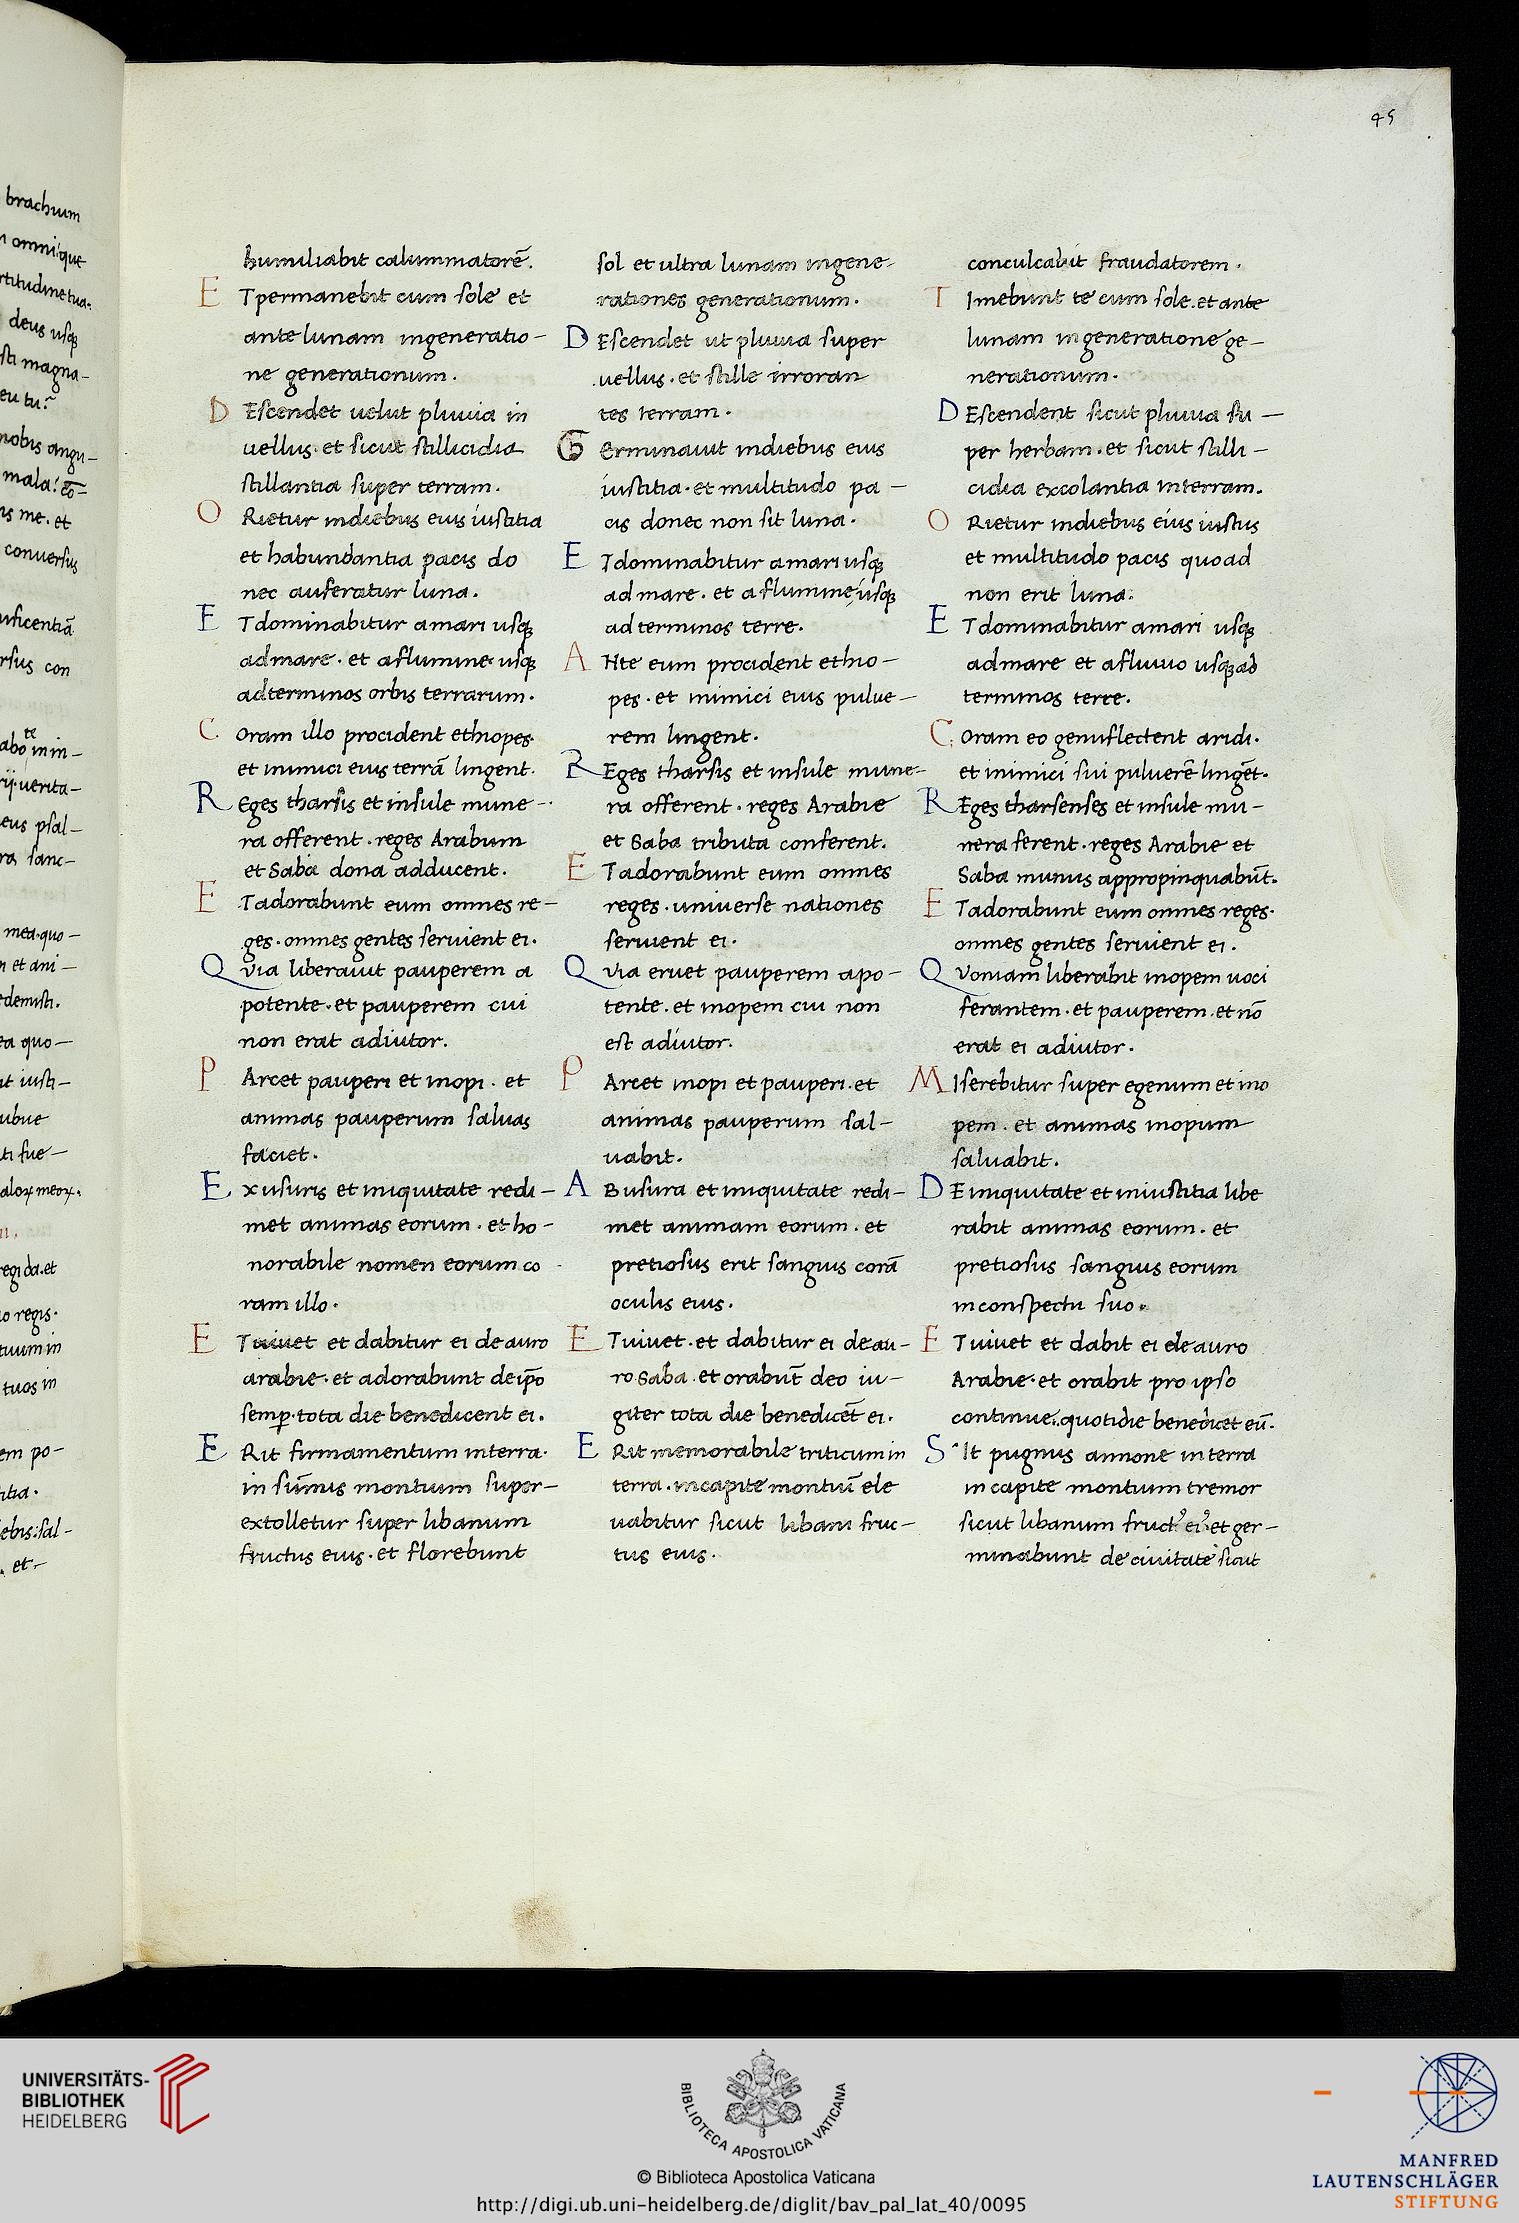 45
brachum
omni que
rtitudine tua.
deus usq;
sti magna-
eu tu?
nobis angu-
mala! eō-
is me. et
conuersus
nificentiā
rsus con
te
abo in in-
rij. uerita-
eus psal-
ra sanc-
mea. quo-
n et ani-
edemisti.
ea quo-
it iusti-
ubue
ti fue-
regi da. et
io regis.
tuum in
tuos in
em po-
itia.
ebis: sal-
. et-
humiliabit calummatorē.
E Tpermanebit cum sole et
ante lunam ingeneratio-
ne generationum.
D Escendet uelut pluuia in
uellus. et sicut stillicidia
stillantia super terram.
O Rietur indiebus eius iustitia
et habundantia pacis do
nec auferatur luna.
E Tdominabitur amari usq;
admare. et aflumine usq;
adterminos orbis terrarum.
C oram illo procident ethiopes.
et inimici eius terrā lingent.
R Eges tharsis et insule mune-
ra offerent. reges Arabum
et Saba dona adducent.
E Tadorabunt eum omnes re-
ges. omnes gentes seruient ei.
Q via liberauit pauperem a
potente. et pauperem cui
non erat adiutor.
P Arcet pauperi et inopi. et
animas pauperum saluas
faciet.
E xusuris et iniquitate redi-
met animas eorum. et ho-
norabile nomen eorum co
ram illo.
E Tuiuet et dabitur ei de auro
arabie. et adorabunt de ip̄o
semp. tota die benedicent ei.
E Rit firmamentum interra.
in sūmis montium super-
extolletur super libanum
fructus eius. et florebunt
sol et ultra lunam ingene-
rationes generationum.
D Escendet ut pluuia super
uellus. et stille irroran
tes terram.
G erminauit indiebus eius
iustitia. et multitudo pa-
cis donec non sit luna.
E Tdominabitur amari usq;
ad mare. et a flumine usq;
ad terminos terre.
A Nte eum procident ethio-
pes. et inimici eius pulue-
rem lingent.
R Eges tharsis et insule mune-
ra offerent. reges Arabie
et Saba tributa conferent.
E Tadorabunt eum omnes
reges. universe nationes
seruient ei.
Q via eruet pauperem apo-
tente. et inopem cui non
est adiutor.
P Arcet inopi et pauperi. et
animas pauperum sal-
uabit.
A Busura et iniquitate redi-
met animam eorum. et
pretiosus erit sanguis corā
oculis eius.
E Tuiuet. et dabitur ei de au-
ro Saba. et orabūt deo iu-
giter tota die benedicēt ei.
E Rit memorabile triticum in
terra. incapite montiū ele
uabitur sicut libani fruc-
tus eius.
conculcabit fraudatorem.
T Imebunt te cum sole. et ante
lunam ingeneratione ge-
nerationum.
D Escendent sicut pluuia su-
per herbam. et sicut stilli-
cidia excolantia interram.
O Rietur indiebus eius iustus
et multitudo pacis quoad
non erit luna.
E Tdominabitur amari usq;
admare et afluuio usq; ad
terminos terre.
C oram eo genuflectent aridi.
et inimici sui puluerē lingēt.
R Eges tharsenses et insule mu-
nera ferent. reges Arabie et
Saba munus appropinquabūt.
E Tadorabunt eum omnes reges.
omnes gentes seruient ei.
Q Voniam liberabit inopem uoci
ferantem. et pauperem. et nō
erat ei adiutor.
M Iserebitur super egenum et ino
pem. et animas inopum
saluabit.
D E iniquitate et iniustitia libe
rabit animas eorum. et
pretiosus sanguis eorum
inconspectu suo.
E Tuiuet et dabit ei de auro
Arabie. et orabit pro ipso
continue. quotidie benedicet eū.
S It pugnus annone in terra
in capite montium tremor
sicut libanum fruct⁹ ei⁹ et ger-
minabunt de ciuitate sicut
UNIVERSITÄTS-
BIBLIOTHEK
HEIDELBERG
BIBLIOTECA APOSTOLICA VATICANA
© Biblioteca Apostolica Vaticana
http://digi.ub.uni-heidelberg.de/diglit/bav_pal_lat_40/0095
MANFRED
LAUTENSCHLÄGER
STIFTUNG